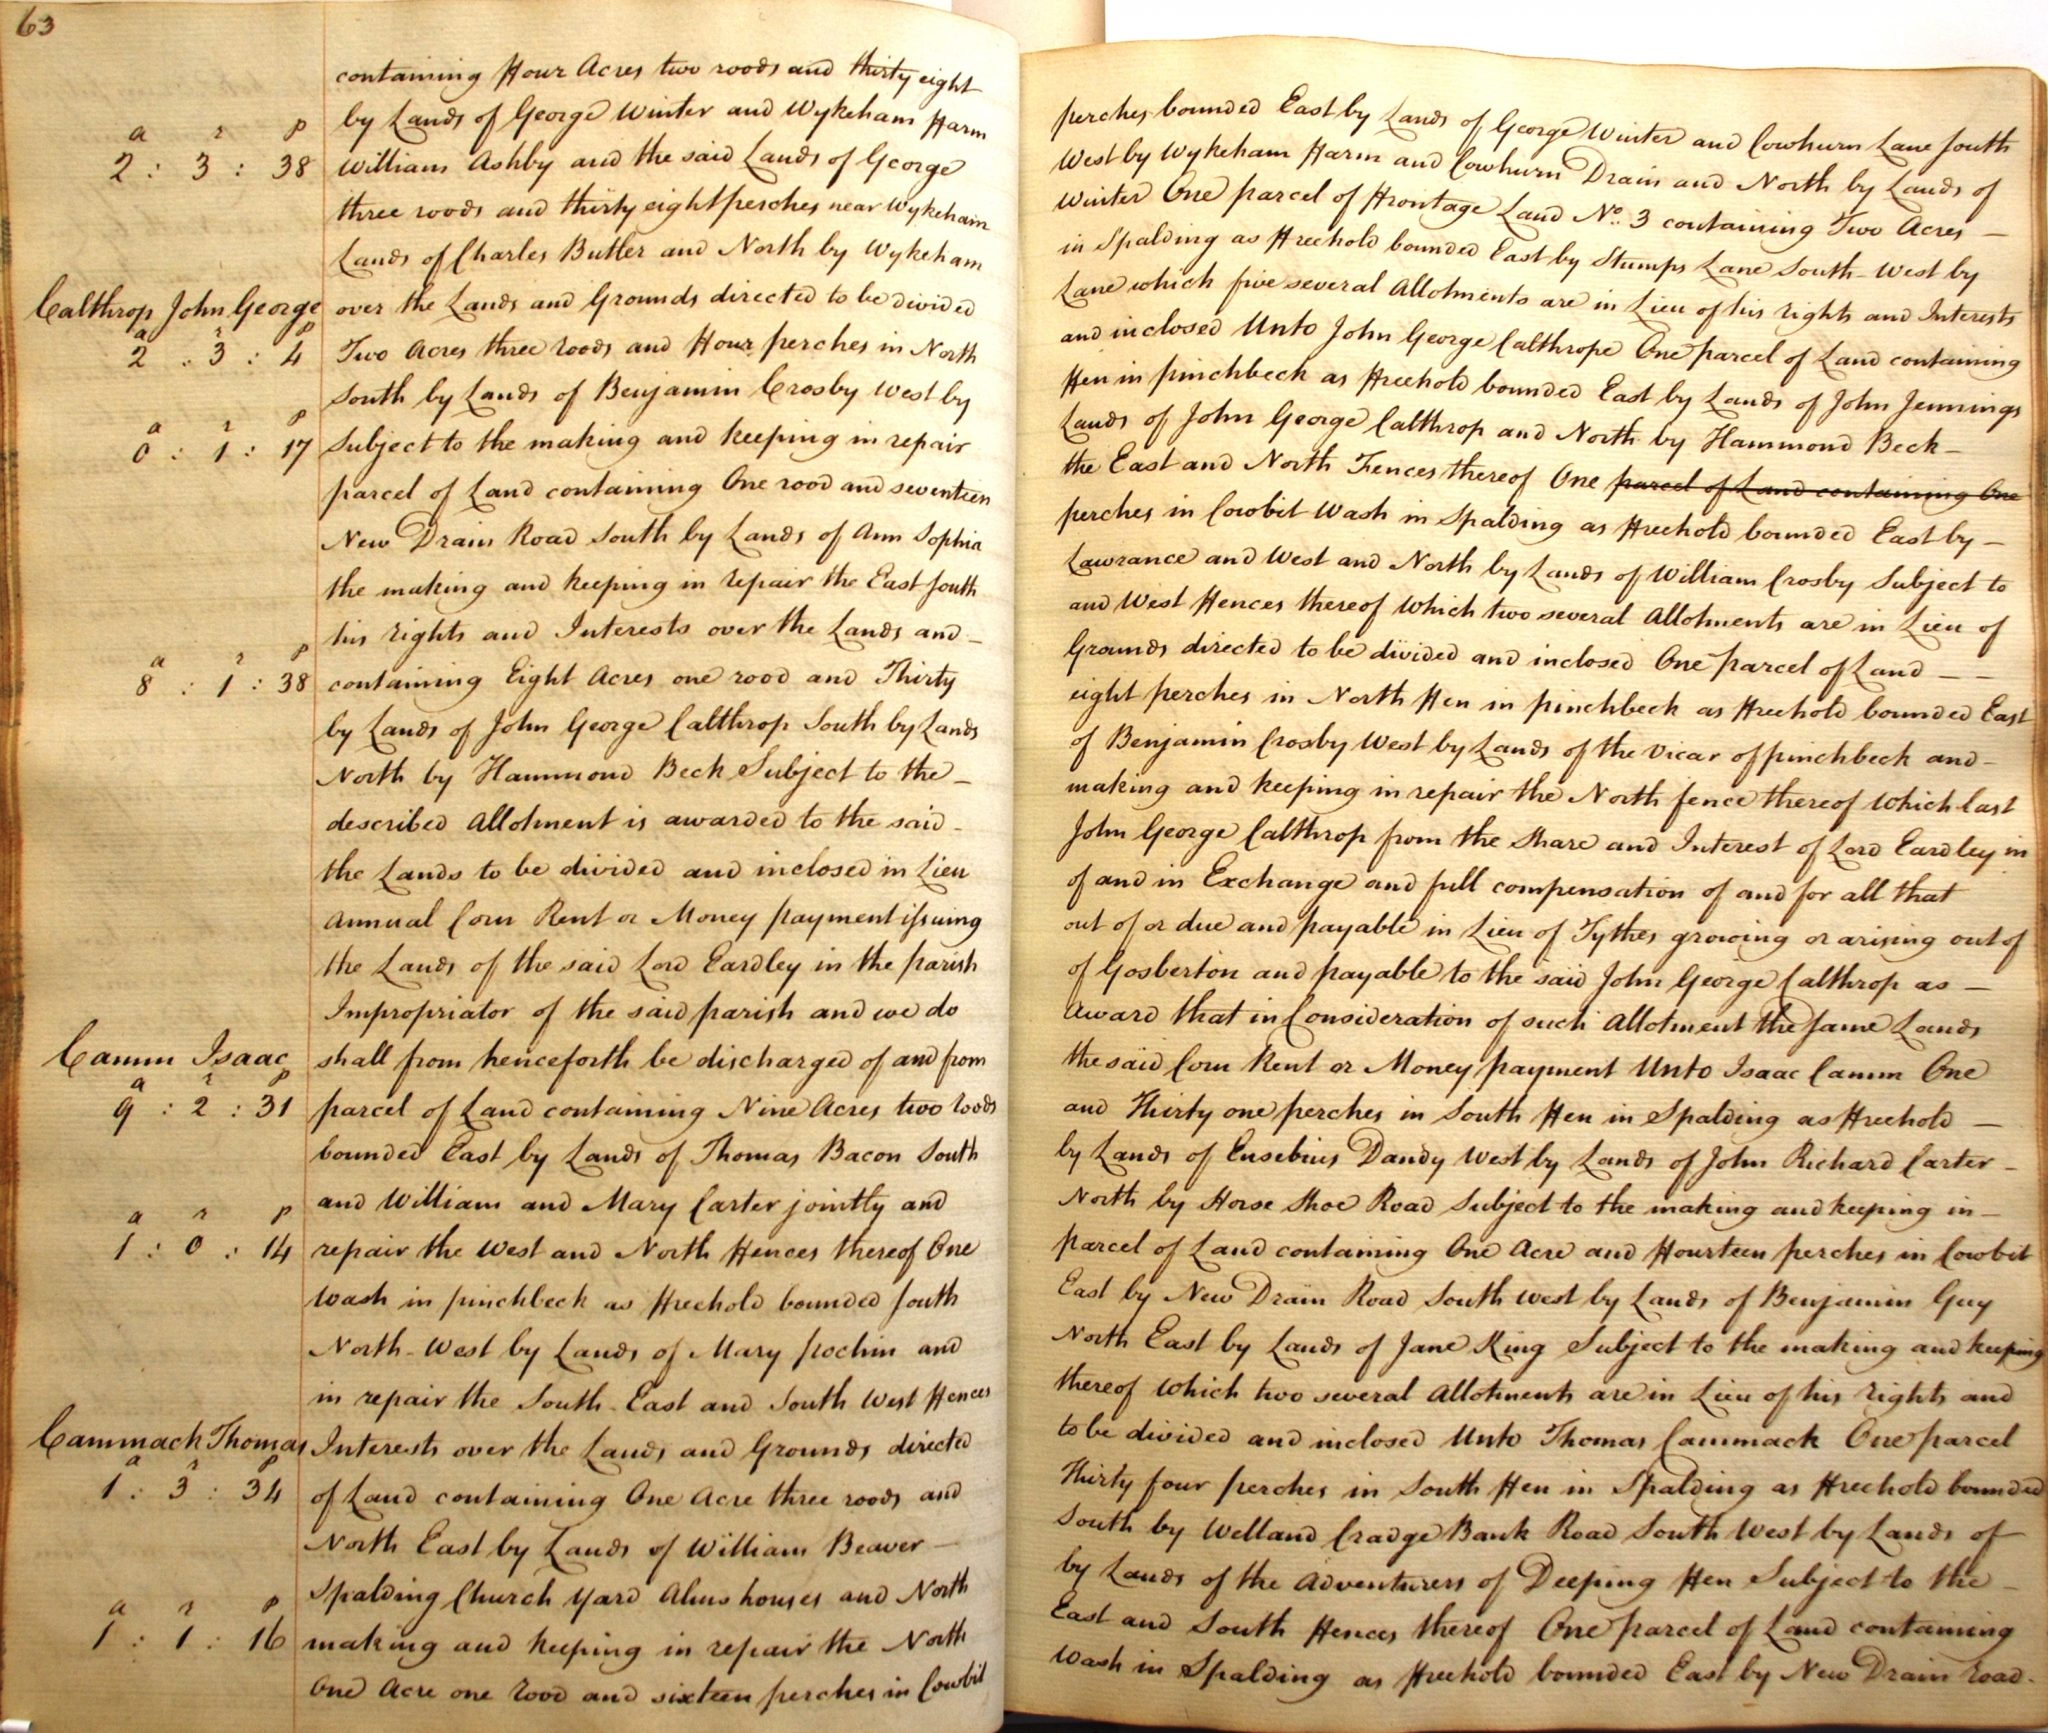 63
containing ffour Acres two roods and thirty eight perches bounded East by Lands of George Winter and Cowhurn Lane South
by Lands of George Winter and Wykeham ffarm West by Wykeham ffarm and Cowhurn Drain and North by Lands of
a r p
2 : 3 : 38 William Ashby and the said Lands of George Winter One parcel of ffrontage Land No. 3 containing Two Acres –
three roods and thirty eight perches near Wykeham in Spalding as ffreehold bounded East by Stumps Lane South-West by
Lands of Charles Butler and North by Wykeham Lane which five several Allotments are in Lieu of his rights and Interests
Calthrop John George over the Lands and Grounds directed to be divided and inclosed Unto John George Calthrope One parcel of Land containing
a r p
2 : 3 : 4 Two Acres three roods and ffour perches in North ffen in pinchbeck as ffreehold bounded East by Lands of John Jennings
South by Lands of Benjamin Crosby West by Lands of John George Calthrop and North by Hammond Beck –
a r p
0 : 1 : 17 Subject to the making and keeping in repair the East and North Fences thereof One parcel of Land containing One
parcel of Land containing One rood and seventeen perches in Cowbit Wash in Spalding as ffreehold bounded East by –
New Drain Road South by Lands of Ann Sophia Lawrance and West and North by Lands of William Crosby Subject to
the making and keeping in repair the East South and West ffences thereof which two several Allotments are in Lieu of
his rights and Interests over the Lands and – Grounds directed to be divided and inclosed One parcel of Land – –
a r p
8 : 1 : 38 containing Eight Acres one rood and Thirty eight perches in North ffen in pinchbeck as ffreehold bounded East
by Lands of John George Calthrop South by Lands of Benjamin Crosby West by Lands of the Vicar of pinchbeck and –
North by Hammond Beck Subject to the – making and keeping in repair the North fence thereof which last
described Allotment is awarded to the said – John George Calthrop from the Share and Interest of Lord Eardley in
the Lands to be divided and inclosed in Lieu of and in Exchange and full compensation of and for all that
annual Corn Rent or Money payment issuing out of or due and payable in Lieu of Tythes growing or arising out of
the Lands of the said Lord Eardley in the parish of Gosberton and payable to the said John George Calthrop as –
Impropriator of the said parish and we do Award that in Consideration of such Allotment the same Lands
Camm Isaac shall from henceforth be discharged of and from the said Corn Rent or Money payment Unto Isaac Camm One
a r p
9 : 2 : 31 parcel of Land containing Nine Acres two roods and Thirty one perches in South ffen in Spalding as ffreehold –
bounded East by Lands of Thomas Bacon South by Lands of Eusebius Dandy West by Lands of John Richard Carter –
and William and Mary Carter jointly and North by Horse Shoe Road Subject to the making and keeping in –
a r p
1 : 0 : 14 repair the West and North ffences thereof One parcel of Land containing One Acre and ffourteen perches in Cowbit
Wash in pinchbeck as ffreehold bounded South East by New Drain Road South West by Lands of Benjamin Guy
North-West by Lands of Mary pochin and North East by Lands of Jane King Subject to the making and keeping
in repair the South-East and South West ffences thereof which two several Allotments are in Lieu of his rights and
Cammack Thomas Interests over the Lands and Grounds directed to be divided and inclosed Unto Thomas Cammack One parcel
a r p
1 : 3 : 34 of Land containing One Acre three roods and Thirty four perches in South ffen in Spalding as ffreehold bounded
North East by Lands of William Beaver – South by Welland Cradge Bank Road South West by Lands of
Spalding Church Yard Alms houses and North by Lands of the Adventurers of Deeping ffen Subject to the –
a r p
1 : 1 : 16 making and keeping in repair the North East and South ffences thereof One parcel of Land containing
One Acre one rood and sixteen perches in Cowbit Wash in Spalding as ffreehold bounded East by New Drain road –